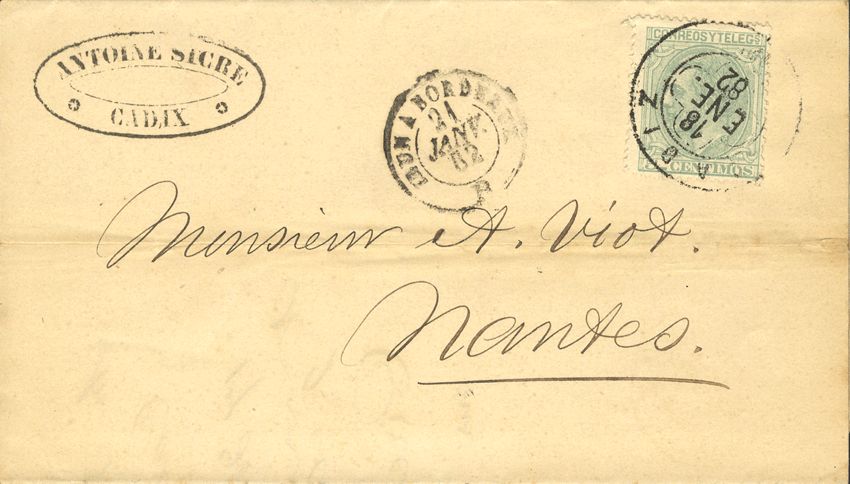 ANTOINE SICRE
CADIX
IRUN A BORDEAUX
21
JANV.
82
CORREOS Y TELEGS
CENTIMOS
18
ENE.
82
Monsieur A. Viot.
Nantes.